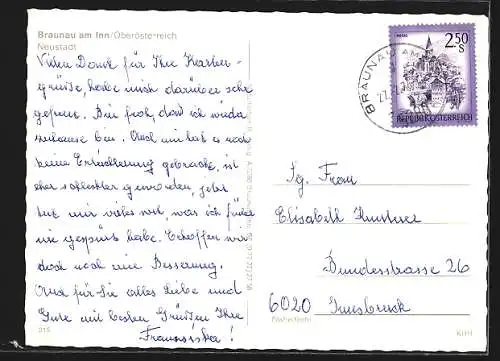 Braunau am Inn/Oberösterreich
Neustadt
Vielen Dank für Ihre Karten-
grüße, habe mich darüber sehr
gefreut. Bin froh, daß ich wieder
zuhause bin. Auch mir hat es noch
keine Erleichterung gebracht, ist
eher schlechter geworden, jetzt
tut mir vieles weh, was ich früher
nie gespürt habe. Erhoffen wir
doch noch eine Besserung.
Auch für Sie alles Liebe und
Gute mit besten Grüßen Ihre
Franziska!
215
2.50
S
REPUBLIK ÖSTERREICH
BRAUNAU AM
Sg. Frau
Elisabeth
Bundesstrasse 26
6020 Innsbruck
Postleitzahl